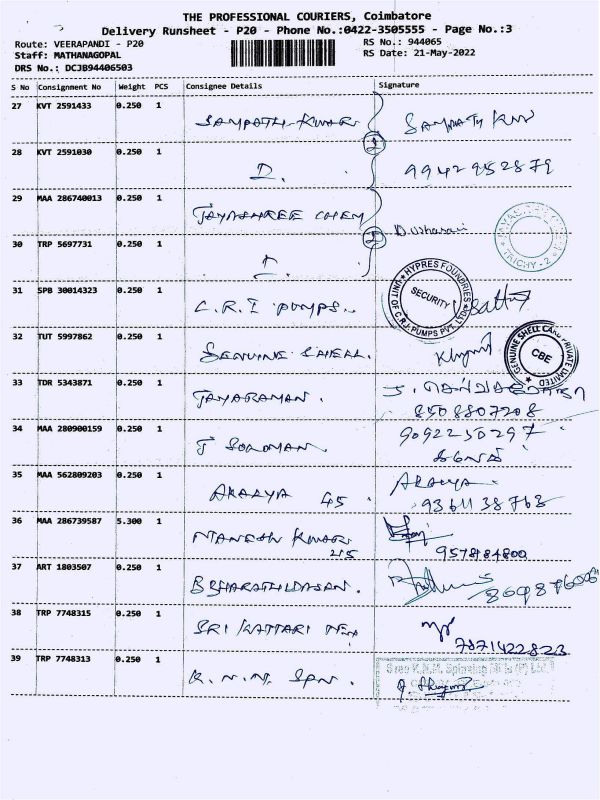 THE PROFESSIONAL COURIERS, Coimbatore
Delivery Runsheet - P20 - Phone No.:0422-3505555 - Page No.:3
Route: VEERAPANDI - P20
RS No.: 944065
Staff: MATHANAGOPAL
RS Date: 21-May-2022
DRS No.: DCJB94406503
S No Consignment No Weight PCS Consignee Details Signature
27 KVT 2591433 0.250 1 SAMPATH KUMAR SAMPATH KUM
2
28 KVT 2591030 0.250 1 D. 9942952879
29 MAA 286740013 0.250 1 JAYASHREE CHEM D. Usharani
2
TRICHY - 2
30 TRP 5697731 0.250 1
31 SPB 30014323 0.250 1 C.R.I PUMPS.
HYPRES FOUNDRIES
SECURITY
UNIT OF C.R.I. PUMPS PVT. LTD.
32 TUT 5997862 0.250 1 GENUINE SHELL.
GENUINE SHELL CARB PRIVATE LIMITED
CBE
33 TDR 5343871 0.250 1 JAYARAMAN.
8508807208
34 MAA 280900159 0.250 1 T SOLOMAN. 9092250297
35 MAA 562809203 0.250 1 AKALYA 45 AKALYA
9361138763
36 MAA 286739587 5.300 1 MANESH KUMAR
215 9578184800
37 ART 1803507 0.250 1 B BHARATHIDASAN.
38 TRP 7748315 0.250 1 SRI KATTARI
7871422823
39 TRP 7748313 0.250 1 K.N.M. SPN.
Sree K.N.M. Spinning Mills (P) Ltd